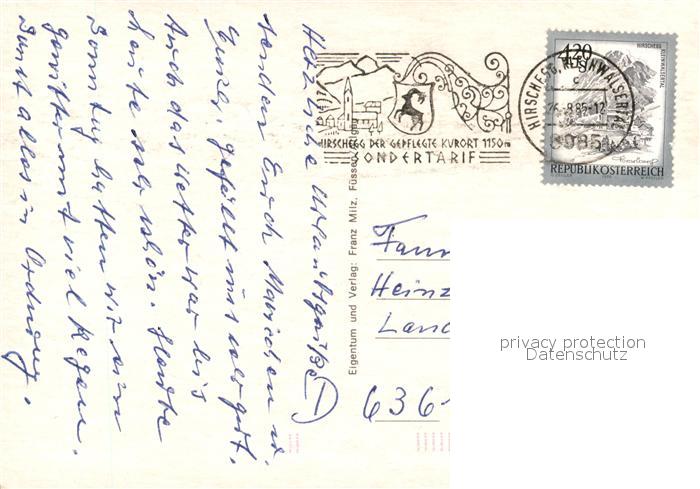 Herzliche Urlaubsgrüße
senden Euch Mariechen u.
Günter. Gefällt uns sehr gut.
Auch das Wetter war bis
heute sehr schön. Heute
Sonntag hatten wir ein
Gewitter mit viel Regen.
Sonst alles in Ordnung.
Eigentum und Verlag: Franz Milz, Füssen
HIRSCHEGG DER GEPFLEGTE KURORT 1150m
ONDERTARIF
HIRSCHEGG, KLEINWALSERTAL
26.-8.85-12
HIRSCHEGG
KLEINWALSERTAL
REPUBLIK ÖSTERREICH
Fam
Heinz
Land
636
privacy protection
Datenschutz